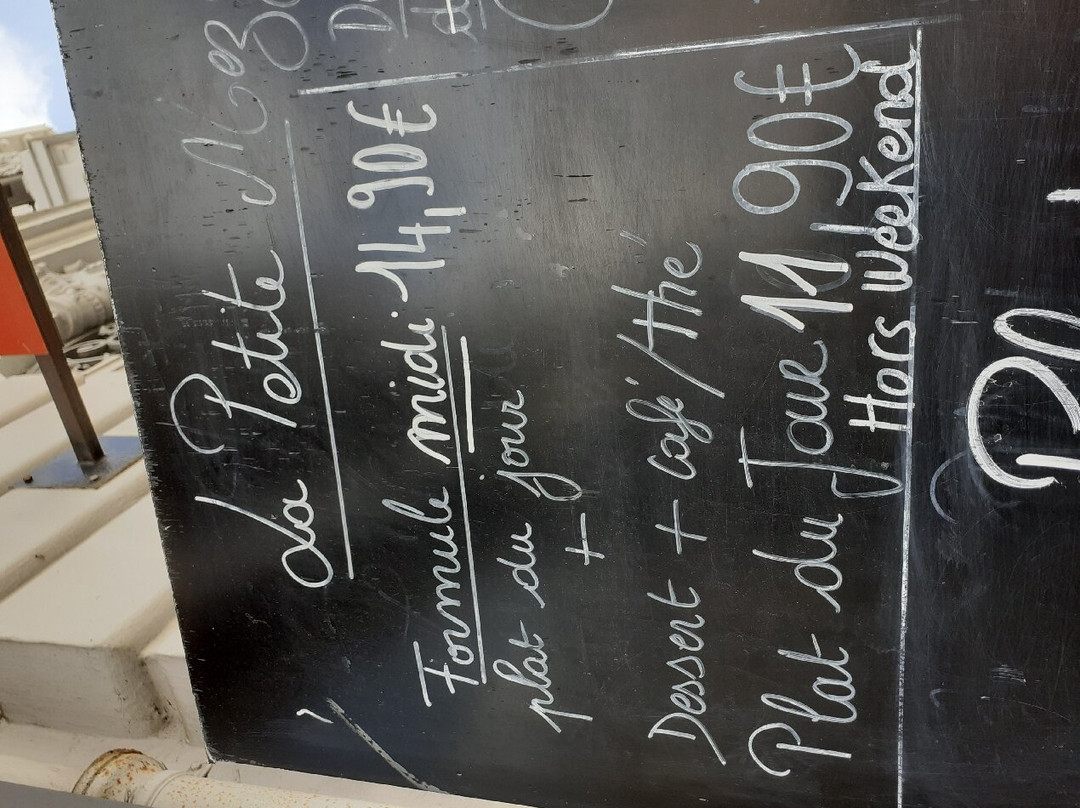 La Petite
Formule midi 14,90€
plat du jour
+
Dessert + café / thé
Plat du Jour 11,90€
Hors weekend